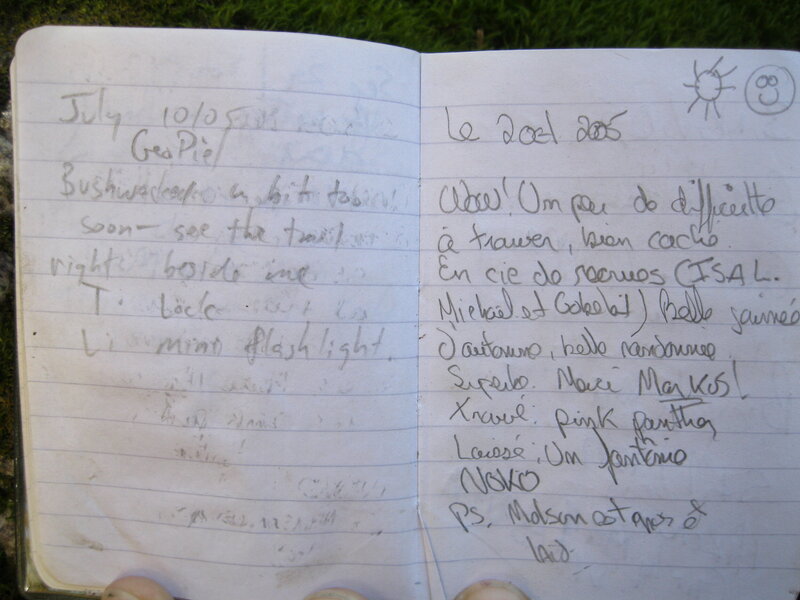 July 10/05
GeoPie
Bushwacked a bit too
soon- see the trail
right beside me
T: Lock
L: mini flashlight.
Le 2 oct 2005
Wow! Un peu de difficulté
à trouver, bien caché.
En cie de (ISAL.
Michael et ) Belle journée
d'automne, belle randonnée.
Superbe. Merci Markus!
Xrouvé: pink panther
Laissé: Un fantôme
NOKO
Ps. Molson est gros et
laid